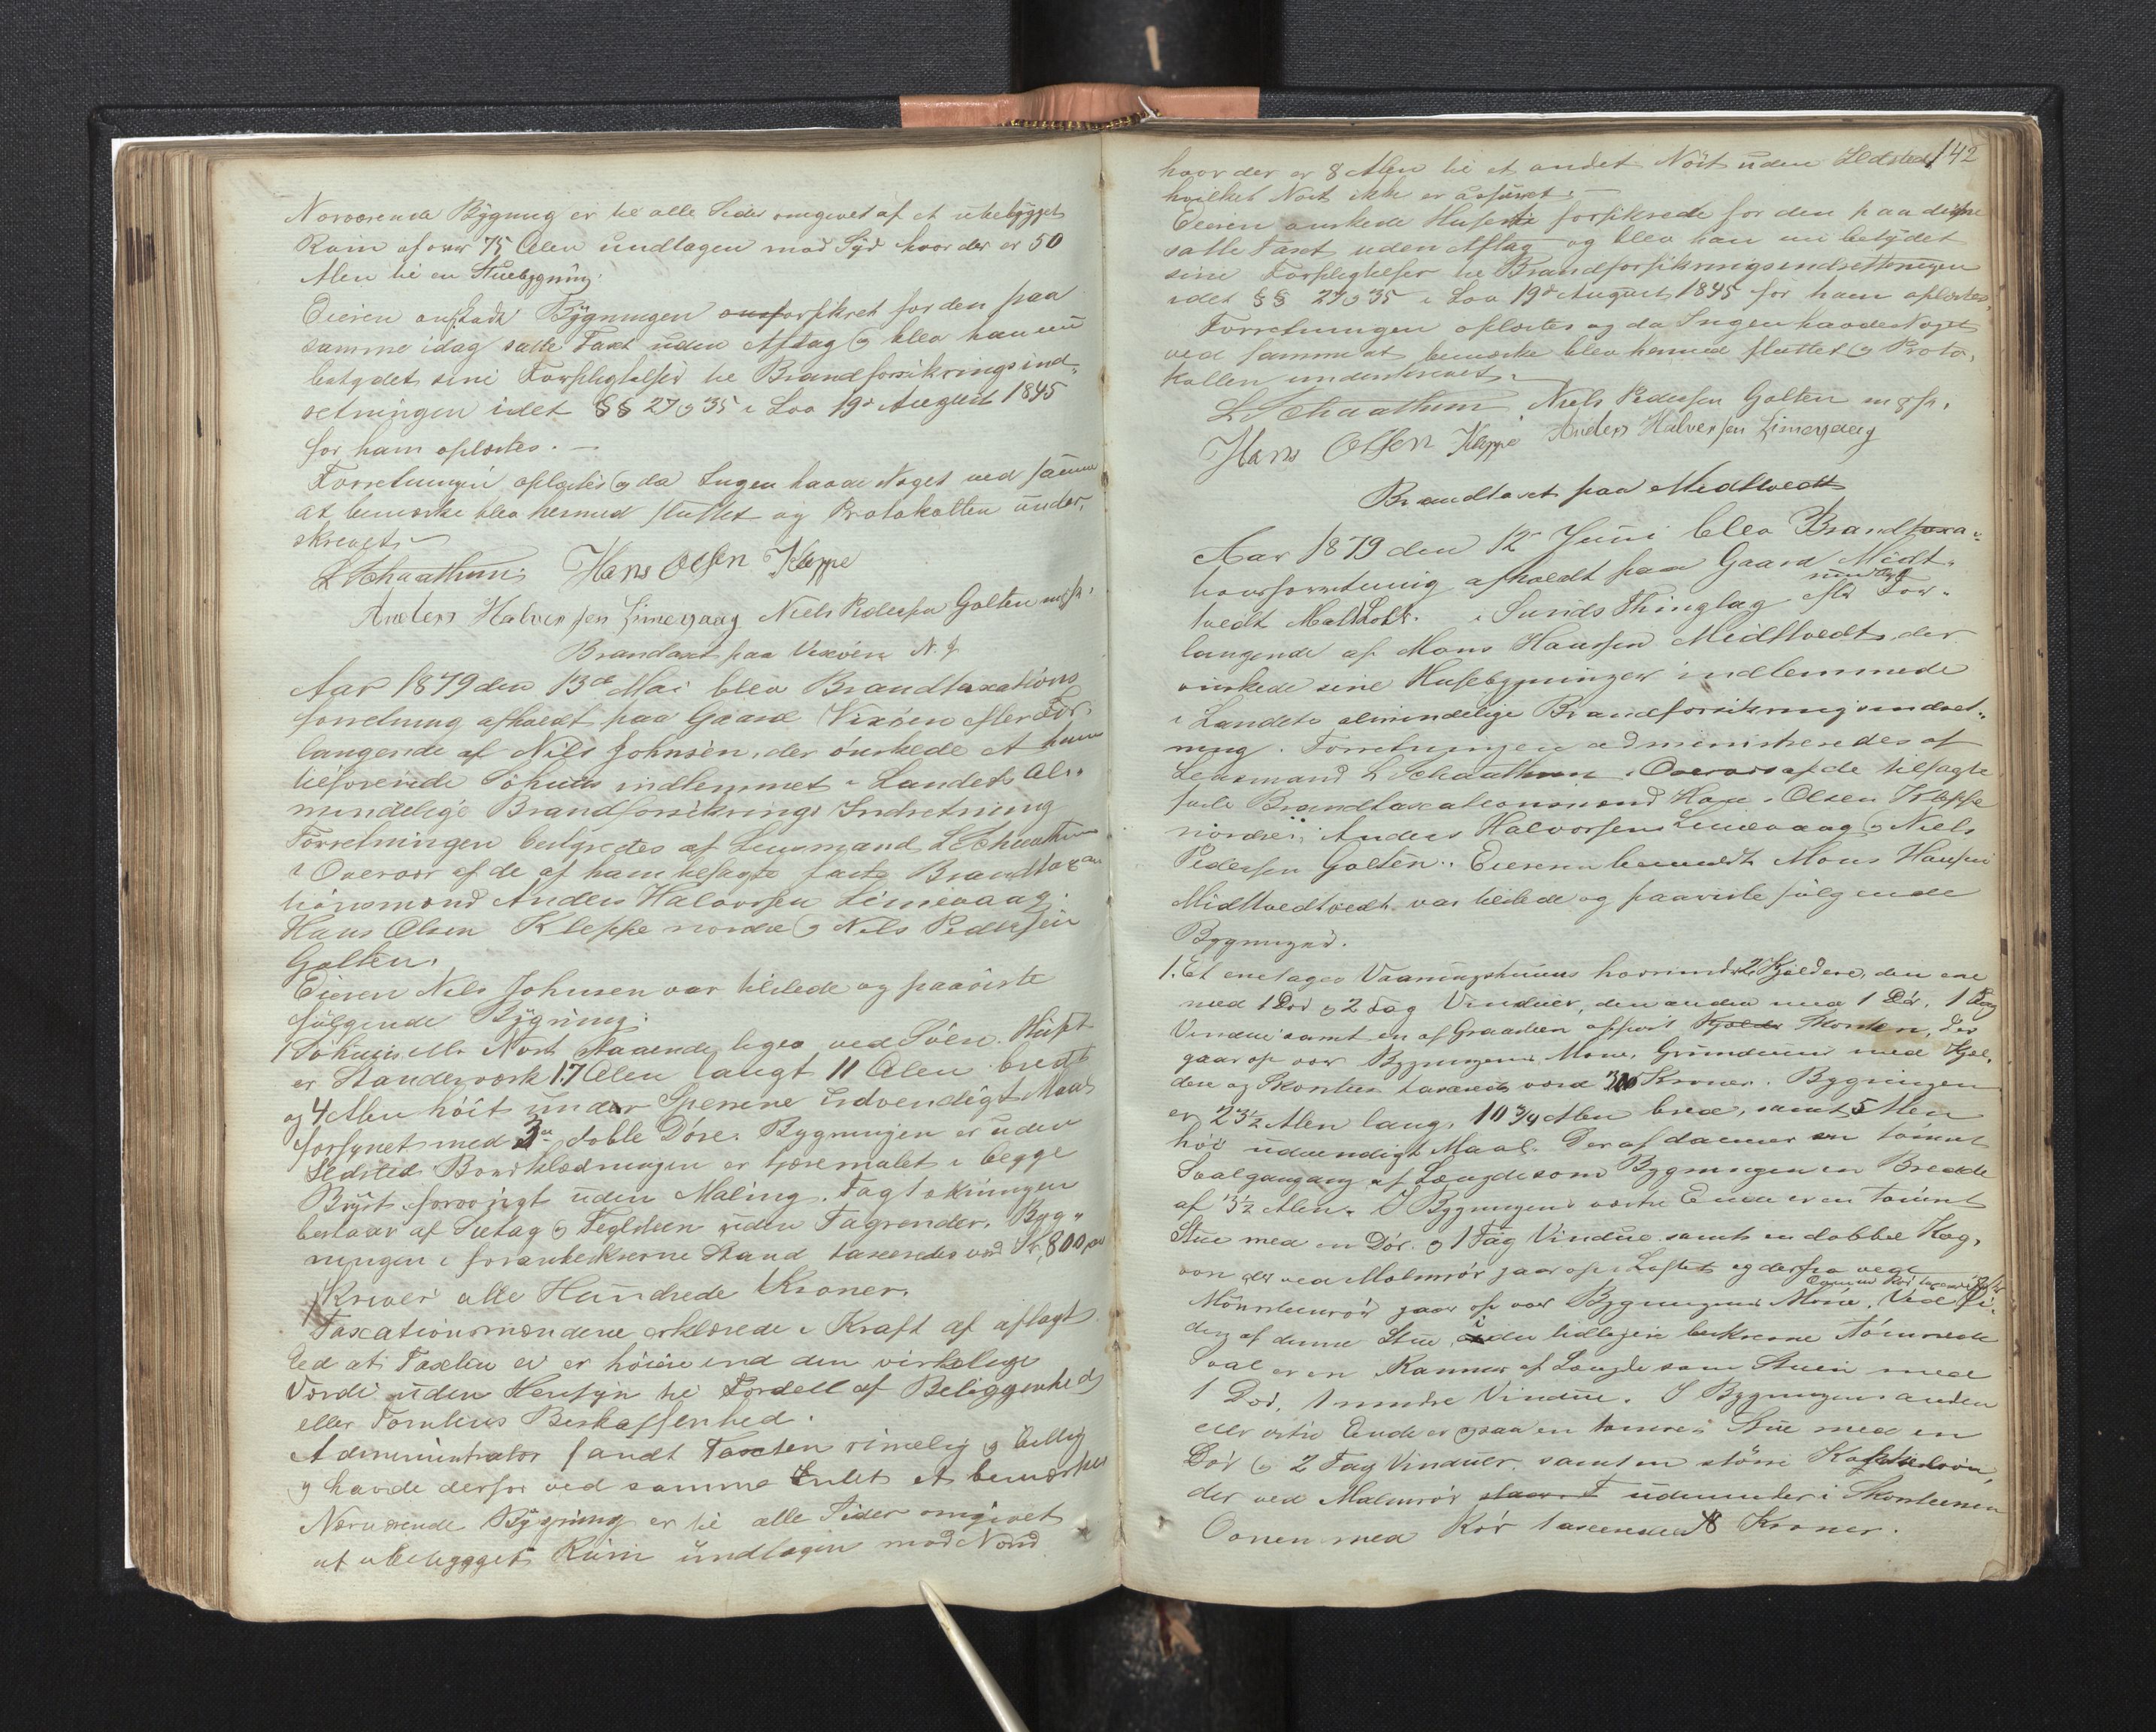 Nærværende Bygning er til alle Sider omgivet af et ubebygget
Rum af over 75 Alen undtagen mod Syd hvor der er 50
Alen til en Stuebygning.
Eieren ønskede Bygningen forsikret for den paa
samme idag satte Taxt uden Aftag og blev han nu
betydet sine Forpligtelser til Brandforsikringsind-
retningen idet §§ 27 og 35 i Lov 19de August 1845
for ham oplæstes. —
Forretningen oplæstes og da Ingen havde Noget ved samme
at bemærke blev hermed sluttet og Protokollen under-
skrevet.
L Schaathun Hans Olsen Kleppe
Anders Halvorsen Limevaag Niels Pedersen Golten m f p.
Brandtaxt paa Vixøen N. J
Aar 1879 den 13de Mai blev Brandtaxations
forretning afholdt paa Gaard Vixøen efter For-
langende af Nils Johnsen, der ønskede et ham
tilhørende Søhuus indlemmet i Landets Al-
mindelige Brandforsikrings Indretning
Forretningen bestyredes af Lensmand L Schaathun
i Overvær af de af ham tilsagte faste Brandtaxa
tionsmænd Anders Halvorsen Limevaag.
Hans Olsen Kleppe nordre og Nils Pedersen
Golten.
Eieren Nils Johnsen var tilstede og paaviste
følgende Bygning:
1 Søhuus eller Nøst staaende lige ved Søen. Huset
er Standerværk 17 Alen langt 11 Alen bredt
og 4 Alen høit under Sperrene udvendigt Maal
forsynet med 3de doble Døre. Bygningen er uden
Ildsted Bordklædningen er tjæremalet i begge
Bryst forøvrigt uden Maling. Tagtækningen
bestaar af Sutag og Teglsteen uden Tagrender. Byg-
ningen i foranbeskrevne Stand taxeredes ved Kr, 800,00
skriver otte Hundrede Kroner.
Taxationsmændene erklærede i Kraft af aflagt
Eed at Taxten ei er høiere end den virkelige
Værdi uden Hensyn til Fordell af Beliggenhed
eller Tomtens Beskaffenhed.
Administrator fandt Taxten rimelig og billig
og havde derfor ved samme Intet at bemærke
Nærværende Bygning er til alle Sider omgivet
af ubebygget Rum undtagen mod Nord
142
hvor der er 8 Alen til et andet Nøst uden Ildsted
hvilket Nøst ikke er assureret. —
Eieren ønskede Husene forsikrede for den paa disse
satte Taxt uden Aftag og blev han nu betydet
sine Forpligtelser til Brandforsikringsindretningen
idet §§ 27 og 35 i Lov 19de August 1845 for ham oplæstes.
Forretningen oplæstes og da Ingen havde Noget
ved samme at bemærke blev hermed sluttet og Proto-
kollen underskrevet.
L Schaathun Niels Pedersen Golten m f p.
Hans Olsen Kleppe Anders Halvorsen Limevaag
Brandtaxt paa Midttvedt
Aar 1879 den 12te Juni blev Brandtaxa-
tionsforretning afholdt paa Gaard Midt-
tvedt i Sunds Thinglag efter For-
langende af Mons Hansen Midttvedt, der
ønskede sine Husebygninger indlemmede
i Landets almindelige Brandforsikringsindret-
ning. Forretningen administreredes af
Lensmand L Schaathun i Overvær af de tilsagte
faste Brandtaxationsmænd Hans Olsen Kleppe
nordre, Anders Halvorsen Limevaag og Niels
Pedersen Golten. Eieren bemeldt Mons Hansen
Midttvedtvedt var tilstede og paaviste følgende
Bygninger.
1. Et enetages Vaaningshuus hvorunder 2 Kjeldere, den ene
med 1 Dør og 2 Fag Vinduer, den anden med 1 Dør, 1 Fag
Vindue samt en af Graasteen opført Kjelder Skorsten, der
gaar op over Bygningens Møne. Grundmur med Kjel-
dere og Skorsten taxeredes ved Kroner. Bygningen
er 23½ Alen lang, 10¾ Alen bred, samt 5 Alen
høi udvendigt Maal. Deraf danner en tømret
Svalgangang af Længde som Bygningen en Bredde
af 3½ Alen. I Bygningens østre Ende er en tømret
Stue med en Dør og 1 Fag Vindue samt en dobbel Kog-
ovn der ved Malmrør gaar op i Loftet og derfra ved
Muursteensrør gaar op over Bygningens Møne. Ved Si-
den af denne Stue, i den tidligere beskrevne tømrede
Sval er en Kammer af Længde som Stuen med
1 Dør, 1 mindre Vindue. I Bygningens anden
eller vestre Ende er ogsaa en tømret Stue med en
Dør og 2 Fag Vinduer samt en større Kakkelovn,
der ved Malmrør udmunder i Skorstenen
Ovnen med Rør taxeredes Kroner.